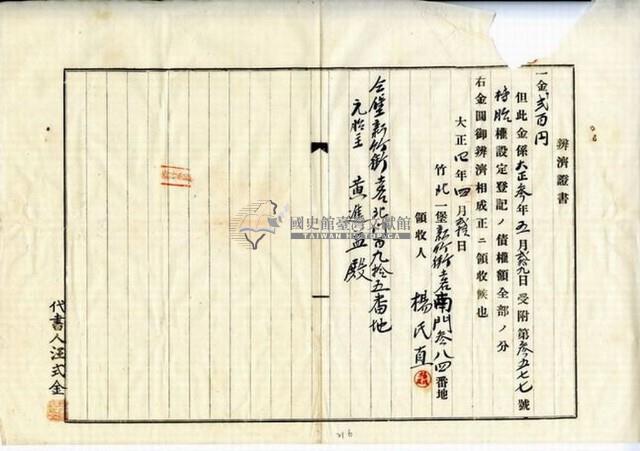 辨濟證書
一金貳百円
但此金係大正叁年五月貳九日受附第叁五七七號
持胎權設定登記ノ債權額全部ノ分
右金圓御辨濟相成正ニ領收候也
大正四年四月 日
竹北一堡新竹街土名南門叁八四番地
領收人 楊氏直
仝堡新竹街土名北 百九拾五番地
元胎主 黃 殿
代書人汪式金
國史館臺灣文獻館
TAIWAN HISTORICA
216